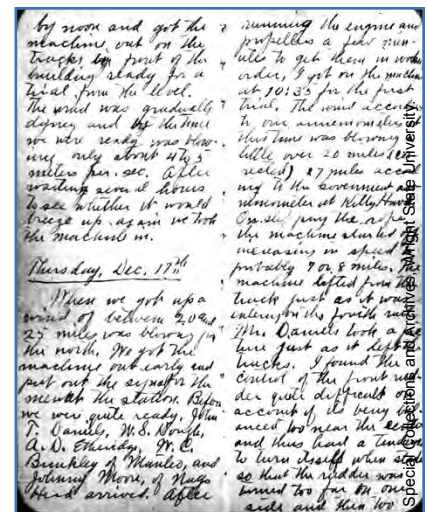 by noon and got the
machine out on the
tracks in front of the
building ready for a
trial from the level.
The wind was gradually
dying and by the time
we were ready was blow-
ing only about 4 to 5
meters per. sec. After
waiting several hours
to see whether it would
breeze up again we took
the machine in.
Thursday, Dec. 17th
When we got up a
wind of between 20 and
25 miles was blowing from
the north. We got the
machine out early and
put out the signal for the
men at the station. Before
we were quite ready, John
T. Daniels, W.S. Dough,
A.D. Etheridge, W.C.
Brinkley of Manteo, and
Johnny Moore, of Nags
Head arrived. After
running the engine and
propellers a few min-
utes to get them in working
order, I got on the machine
at 10:35 for the first
trial. The wind according
to our anemometers at
this time was blowing a
little over 20 miles
27 miles accord
ing to the Government an-
emometer at Kitty Hawk.
On slipping the rope
the machine started off
increasing in speed to
probably 7 or 8 miles. The
machine lifted from the
truck just as it was
entering on the fourth rail.
Mr. Daniels took a pic-
ture just as it left the
tracks. I found the
control of the front rud-
der quite difficult on
account of its being bal-
anced too near the center
and thus had a tendency
to turn itself when started
so that the rudder was
turned too far on one
side and then too
Special Collections and Archives, Wright State University